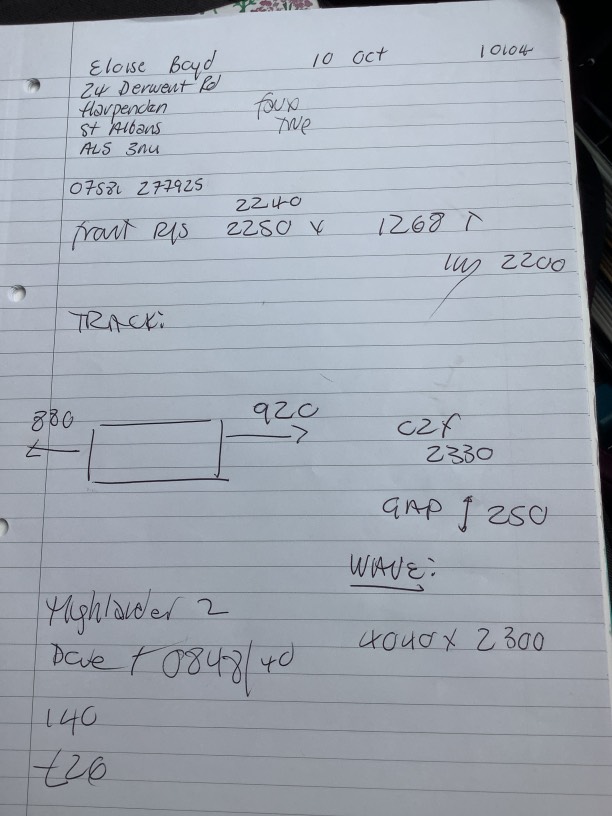 Eloise Boyd 10 Oct 10104
24 Derwent Rd
Harpenden faux
St Albans
AL5 3nu
07581 277925
2240
front R/S 2250 x 1268
2200
TRACK:
880 920
C2F
2330
GAP 250
WAVE:
Highlander 2
4040 x 2300
Dove + 0848/40
140
+26